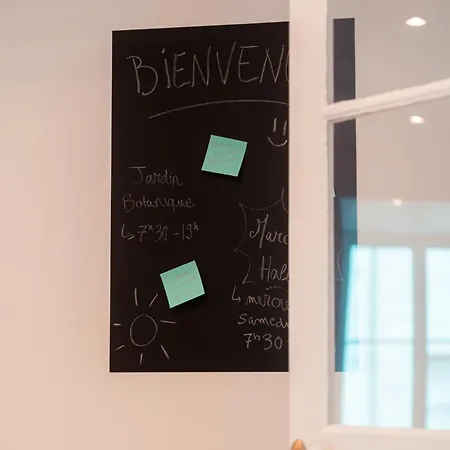 BIENVENU
Jardin
Botanique
↳ 7h30-19h
Marc
Hal
↳ mercre
Samedi
7h30-